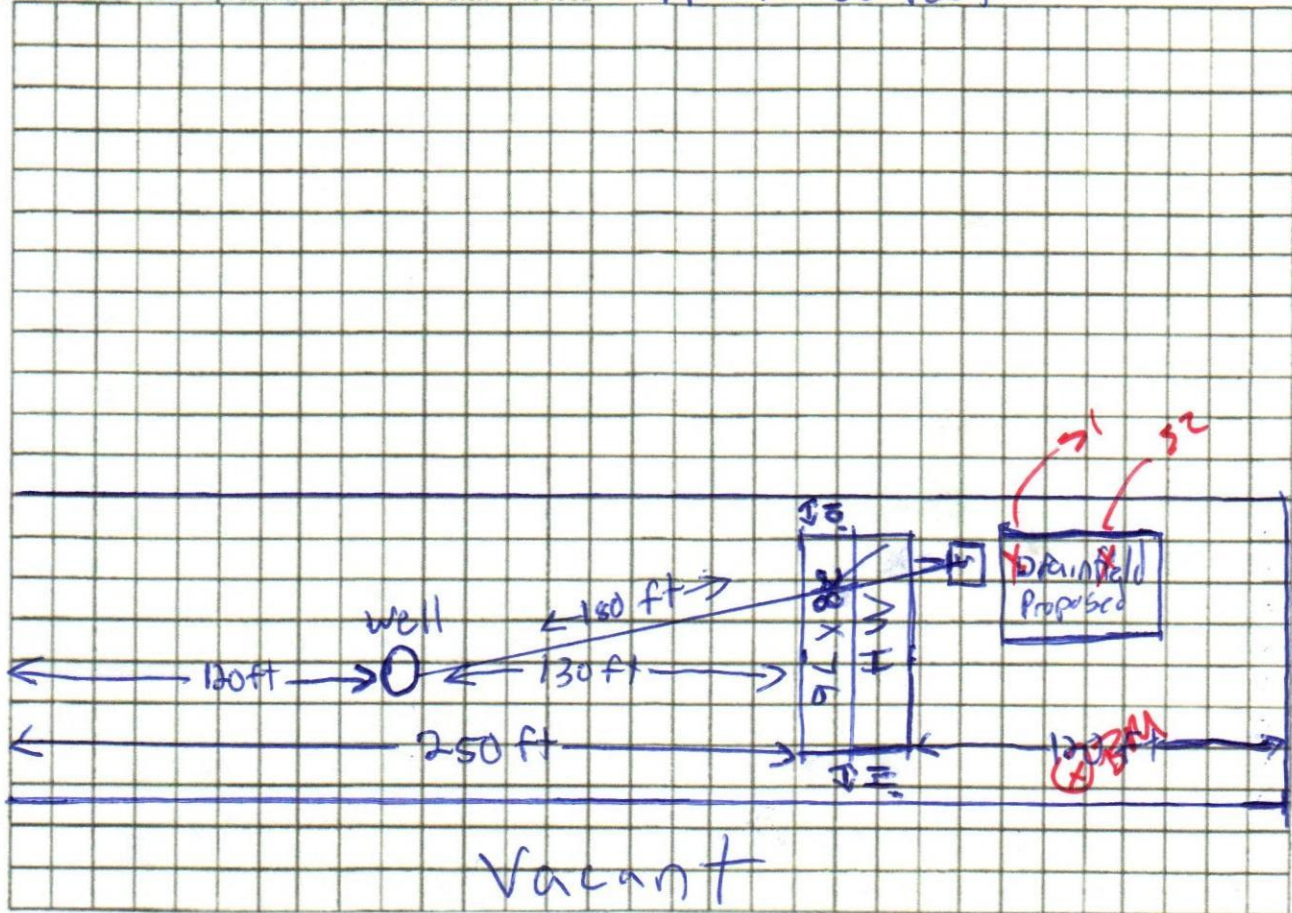 S1
S2
Drainfield
Proposed
180 ft
well
120ft
130 ft
28 x 76
MH
250 ft
BM
Vacant